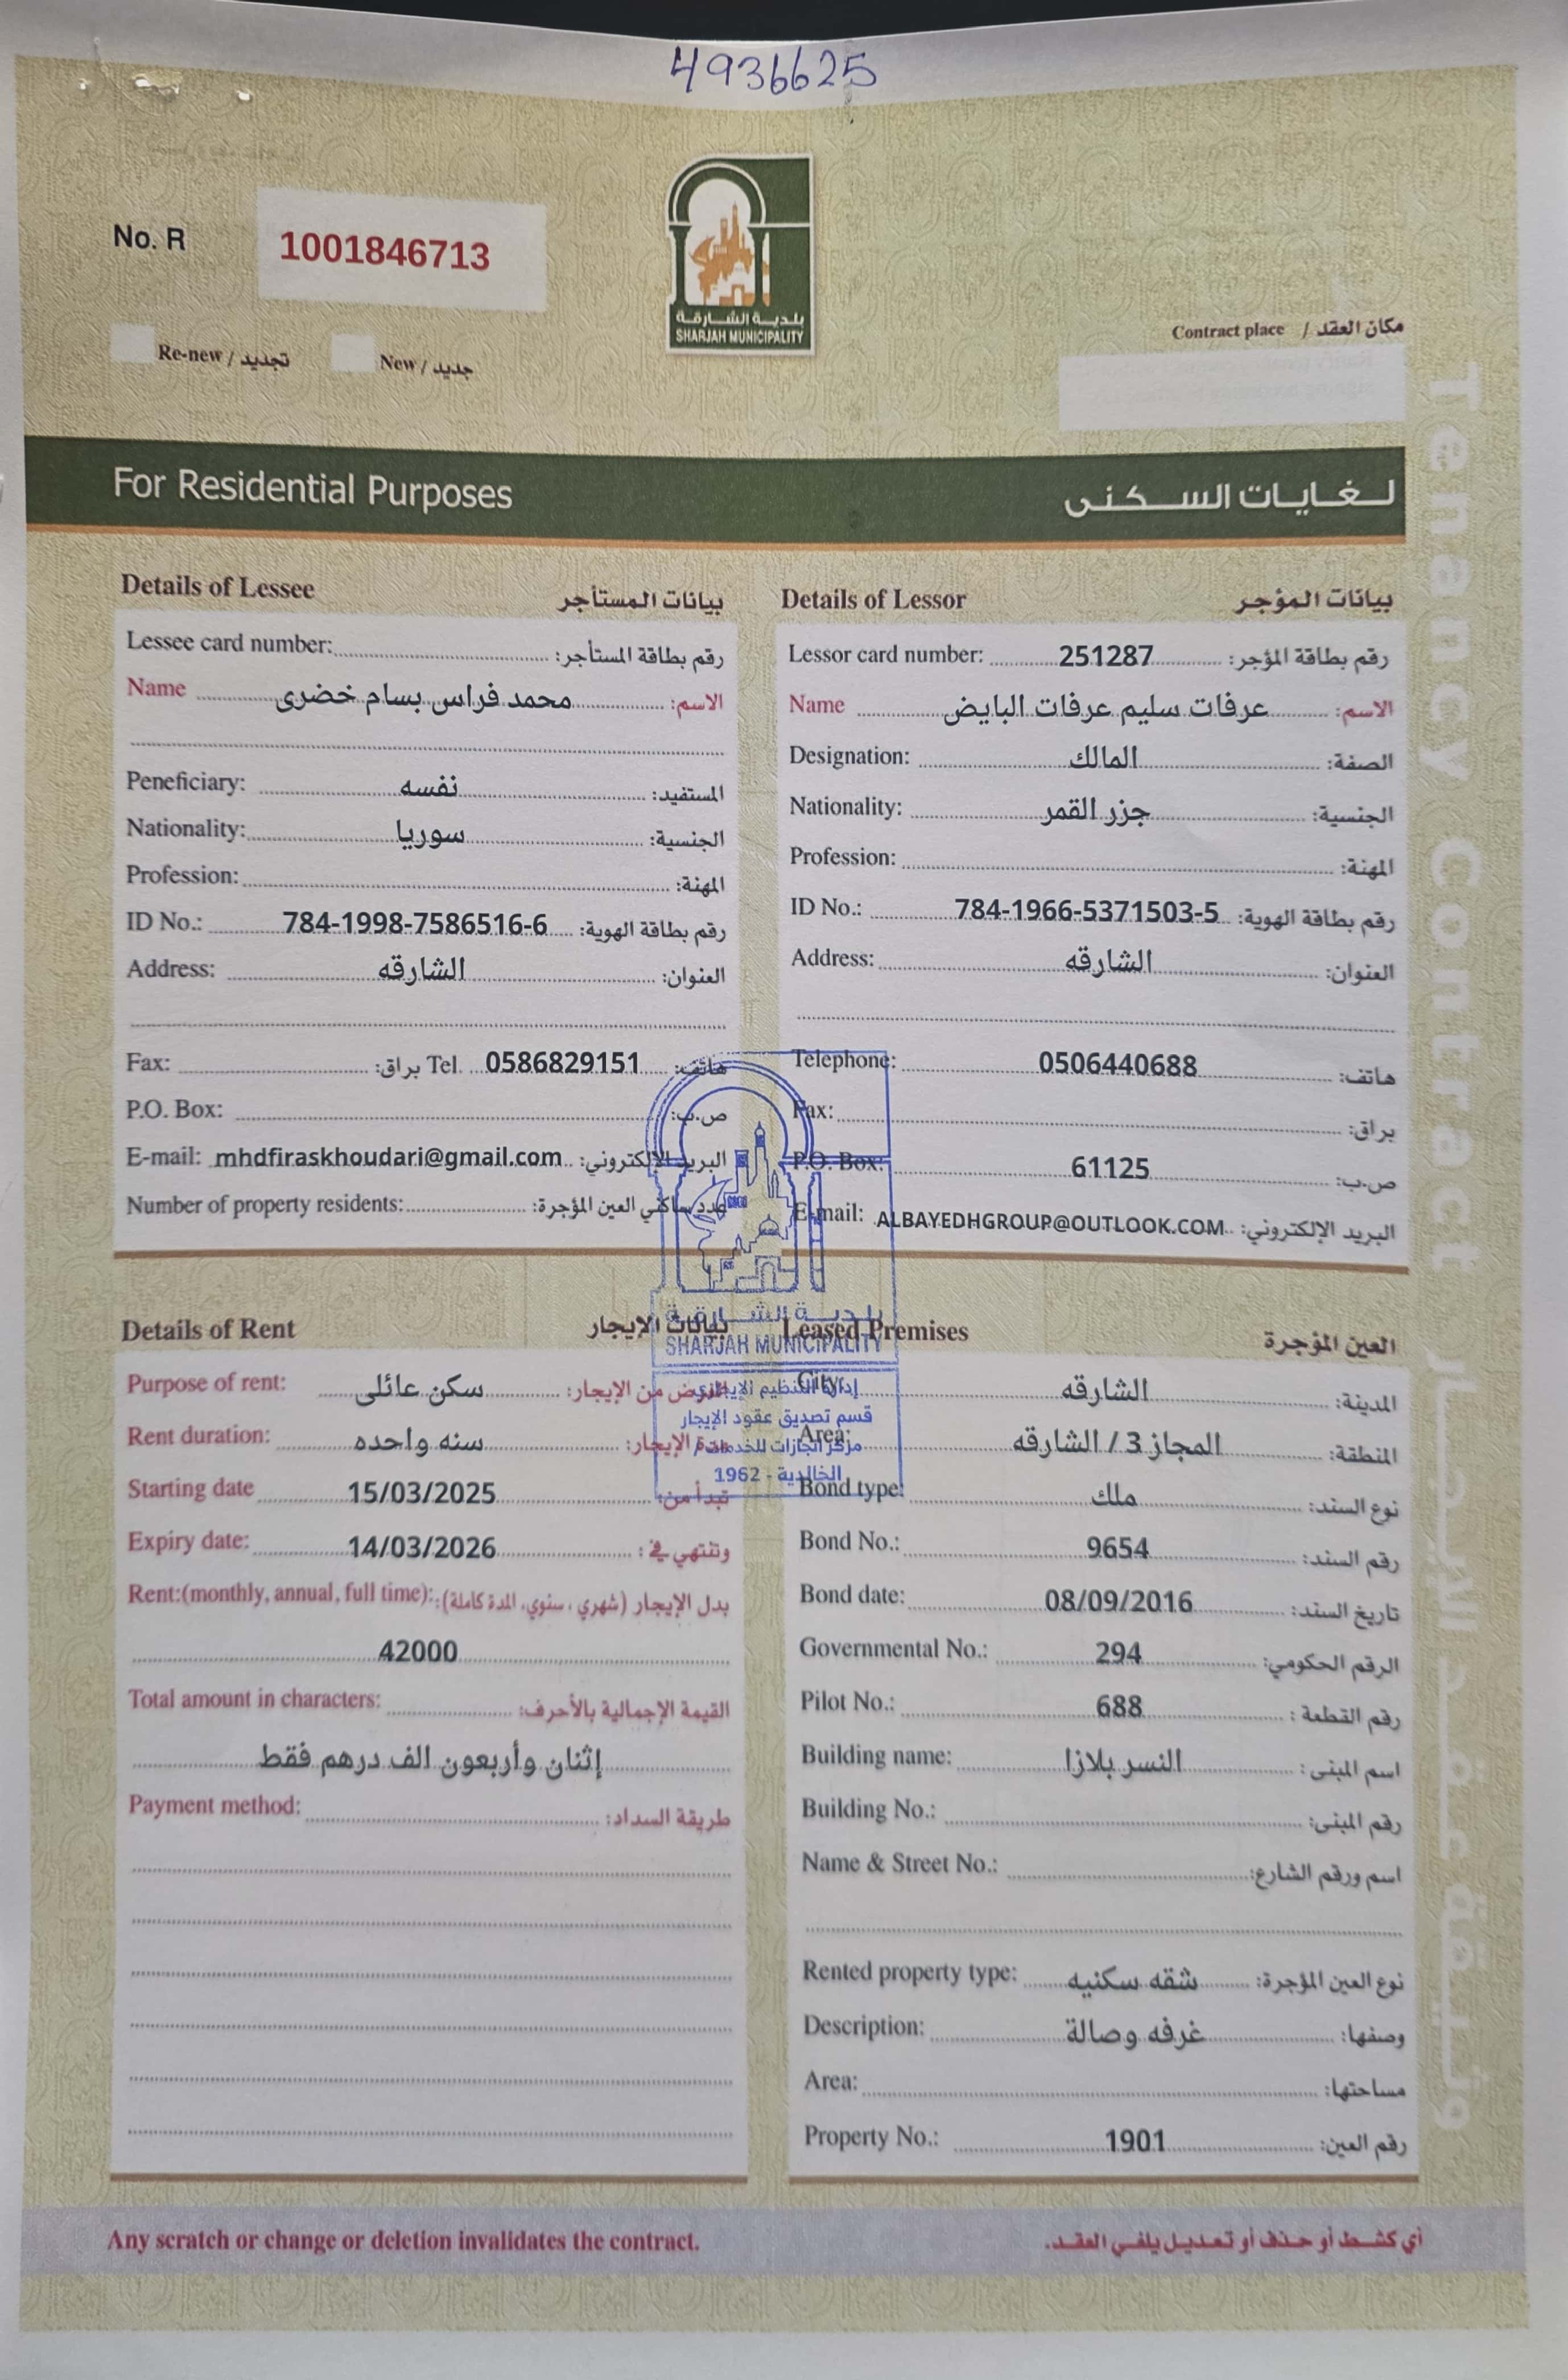 4936625
No. R 1001846713
بلدية الشارقة
SHARJAH MUNICIPALITY
Re-new / تجديد New / جديد
Contract place / مكان العقد
For Residential Purposes لغايات السكنى
Tenancy Contract
Details of Lessee بيانات المستأجر
Lessee card number: رقم بطاقة المستأجر:
Name محمد فراس بسام خضرى الاسم:
Peneficiary: نفسه المستفيد:
Nationality: سوريا الجنسية:
Profession: المهنة:
ID No.: 784-1998-7586516-6 رقم بطاقة الهوية:
Address: الشارقه العنوان:
Fax: براق: Tel. 0586829151 هاتف:
P.O. Box: ص.ب:
E-mail: mhdfiraskhoudari@gmail.com البريد الإلكتروني:
Number of property residents: عدد ساكني العين المؤجرة:
Details of Lessor بيانات المؤجر
Lessor card number: 251287 رقم بطاقة المؤجر:
Name عرفات سليم عرفات البايض الاسم:
Designation: المالك الصفة:
Nationality: جزر القمر الجنسية:
Profession: المهنة:
ID No.: 784-1966-5371503-5 رقم بطاقة الهوية:
Address: الشارقه العنوان:
Telephone: 0506440688 هاتف:
Fax: براق:
P.O. Box: 61125 ص.ب:
E-mail: ALBAYEDHGROUP@OUTLOOK.COM البريد الإلكتروني:
بلدية الشارقة
SHARJAH MUNICIPALITY
إدارة التنظيم الإيجاري
قسم تصديق عقود الإيجار
مركز انجازات للخدمات /
الخالدية - 1962
Details of Rent بيانات الإيجار
Purpose of rent: سكن عائلى الغرض من الإيجار:
Rent duration: سنه واحده مدة الإيجار:
Starting date 15/03/2025 تبدأ من:
Expiry date: 14/03/2026 وتنتهي في:
Rent:(monthly, annual, full time): بدل الإيجار (شهري، سنوي، المدة كاملة):
42000
Total amount in characters: القيمة الإجمالية بالأحرف:
إثنان وأربعون الف درهم فقط
Payment method: طريقة السداد:
Leased Premises العين المؤجرة
City: الشارقه المدينة:
Area: المجاز 3 / الشارقه المنطقة:
Bond type: ملك نوع السند:
Bond No.: 9654 رقم السند:
Bond date: 08/09/2016 تاريخ السند:
Governmental No.: 294 الرقم الحكومي:
Pilot No.: 688 رقم القطعة :
Building name: النسر بلازا اسم المبنى :
Building No.: رقم المبنى:
Name & Street No.: اسم ورقم الشارع:
Rented property type: شقه سكنيه نوع العين المؤجرة:
Description: غرفه وصالة وصفها:
Area: مساحتها:
Property No.: 1901 رقم العين:
Any scratch or change or deletion invalidates the contract. أي كشط أو حذف أو تعديل يلغي العقد.